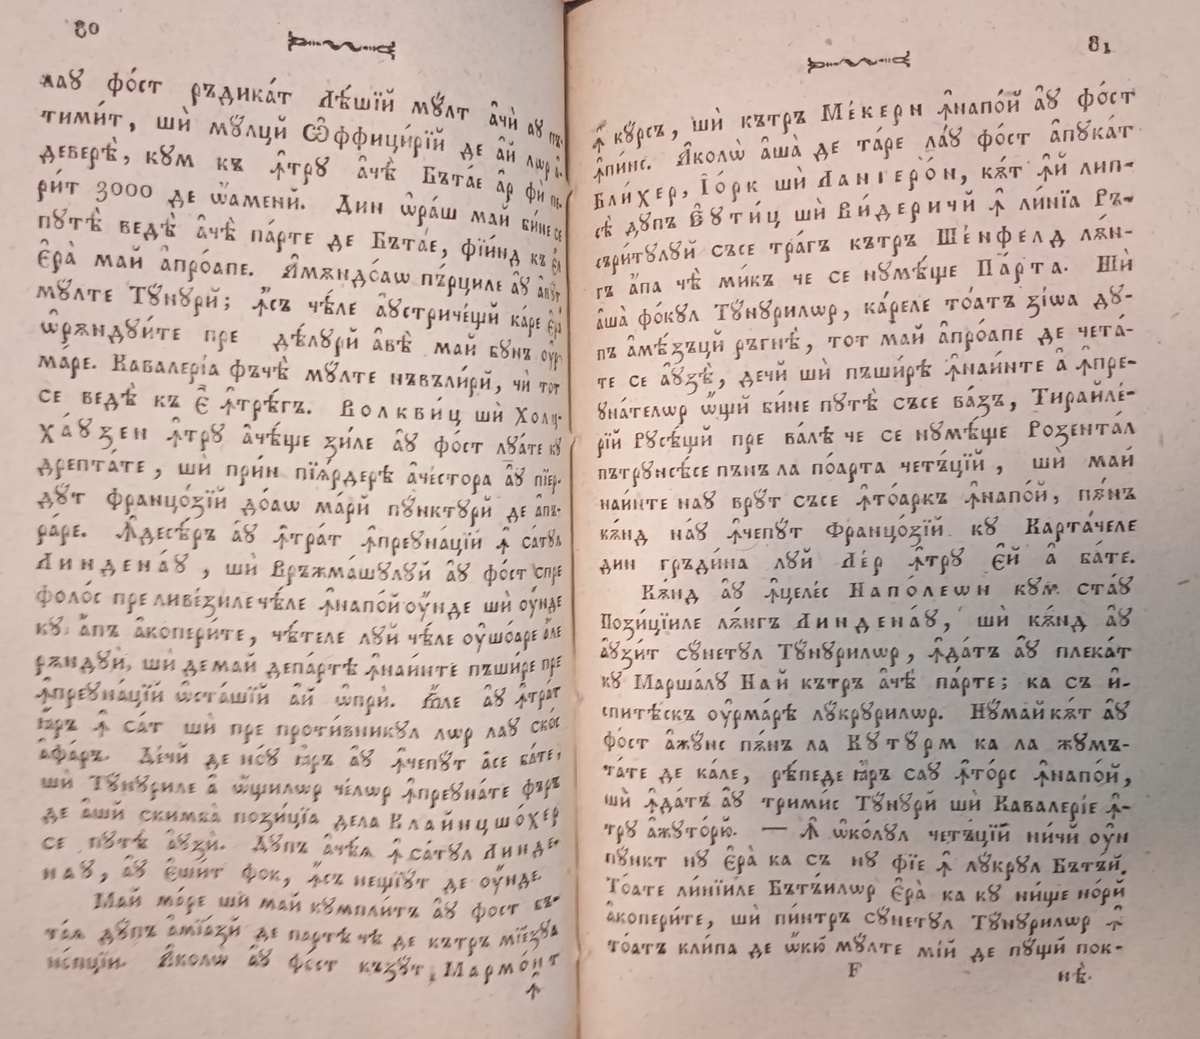 80
лаꙋ фо́ст рꙋдика́т Ле́шїй мꙋ҆лт а҆чѝ аꙋ пъ-
тими́т, шѝ мꙋ҆лцй Ѡ҆ффици́рїй де а҆й лѡр а҆-
деверѣ̀, кꙋм къ ꙟ҆трꙋ а҆чѣ̀ Бъта́е а҆р фѝ пе-
ри́т 3000 де ѡ҆аменй. Дин ѡ҆ра́ш май би́не се
пꙋтѣ̀ ведѣ̀ а҆чѣ̀ па́рте де Бъта́е, фїи́нд къ є҆л
Є҆ра̀ май а҆про́апе. А҆мѫндо́аѡ пъ́рциле аꙋ авꙋ́т
мꙋ́лте Тꙋнꙋрй; ꙟ҆съ чѣ́ле а҆ꙋстриче́щй ка́ре Є҆ра̀
ѡ҆рѫндꙋи́те пре дѣ́лꙋрй а҆вѣ̀ май бꙋнъ оу҆р-
маре. Кавалері́а фъчѣ̀ мꙋ́лте нъвъли́рй, чѝ тот
се ведѣ̀ къ Є҆ ꙟ҆трѣ́гъ. Волкви́ц шѝ Холц-
ха́ꙋзен ꙟ҆трꙋ а҆чѣ́ще зи́ле аꙋ фо́ст лꙋа́те кꙋ
дрепта́те, ши при́н пїѧ҆рдерѣ̀ а҆че́стора аꙋ пїер-
дꙋ́т Францо́зїй до́аѡ ма́рй пꙋ́нктꙋрй де а҆пъ-
ра́ре. Ꙟ҆десѣ́ръ аꙋ ꙟ҆тра́т ꙟ҆преꙋна́цїй ꙟ҆ са́тꙋл
Линдена́ꙋ, шѝ Връжма́шꙋлꙋй аꙋ фо́ст спре
фоло́с пре ливе́зиле чѣ́ле ꙟ҆напо́й оу҆́нде шѝ оу҆́нде
кꙋ а҆пъ а҆копери́те, чѣ́теле лꙋй чѣ́ле оу҆шо́аре а҆ле
рѫндꙋи̇̀, ши де май депа́рте ꙟ҆наи́нте пъши́ре пре
ꙟ҆преꙋна́цїй ѡ҆ста́шїй а҆й ѡ҆прѝ. Ꙗ҆ле аꙋ ꙟ҆тра́т
ꙗ҆ръ ꙟ҆ са́т шѝ пре проти́вникꙋл лѡр лаꙋ ско́с
а҆фа́ръ. Де́чй де но́ꙋ ꙗ҆ръ аꙋ ꙟ҆чепꙋт а҆се ба́те,
шѝ Тꙋнꙋриле а҆ ѡ҆щилѡр че́лѡр ꙟ҆преꙋна́те фъръ
де а҆шй скимба̀ пози́цїа дела Клайнцшо́хер
се пꙋтѣ̀ а҆ꙋзѝ. Дꙋпъ а҆чѣ́ѧ ꙟ҆ са́тꙋл Линде-
наꙋ, аꙋ Є҆ши́т фок, ꙟ҆съ нещїꙋт де оу҆́нде
Май ма́ре шѝ май кꙋмпли́тъ аꙋ фост бъ-
та́ѧ дꙋпъ а҆мїа́зй де партѣ̀ чѣ̀ де кътръ мїе́зꙋа
но́пцїй. А҆колѡ̀ аꙋ фост къзꙋт Мармо́нт
ꙟ҆
81
ꙟ҆ кꙋ́рсъ, шѝ кътръ Ме́керн ꙟ҆напо́й аꙋ фо́ст
ꙟ҆пи́нс. А҆колѡ̀ а҆ша̀ де та́ре ла́ꙋ фо́ст а҆пꙋка́т
Бли́хер, І҆о́рк шѝ Лангеро́н, кѫт ꙟ҆й лип-
сѣ̀ дꙋпъ Є҆ꙋти́ц шѝ Ви́деричй ꙟ҆ ли́нїа Ръ-
съри́тꙋлꙋй съсе тра́гъ кътръ Ше́нфелд лѫн-
гъ а҆па чѣ ми́къ че се нꙋмѣ́ще Па́рта. Шѝ
а҆ша̀ фо́кꙋл Тꙋнꙋрилѡр, ка́реле то́атъ зі́ѡа дꙋ-
пъ а҆мѣ́зъцй ръгнѣ̀, тот май а҆про́апе де чета́-
те се а҆ꙋзѣ̀, дечй шѝ пъши́рѣ ꙟ҆наи́нте а҆ ꙟ҆пре-
ꙋна́телѡр ѡ҆щй би́не пꙋтѣ̀ съсе ва́зъ, Тирайле́-
рїй Рꙋсе́щй пре ва́лѣ че се нꙋмѣ́ще Розента́л
пътрꙋнсе́се пънъ ла по́арта четъ́цїй, шѝ май
наи́нте наꙋ врꙋ́т съсе ꙟ҆то́аркъ ꙟ҆напо́й, пѫнъ
кѫнд на́ꙋ ꙟ҆чепꙋт Францо́зїй кꙋ Карта́челе
дин гръди́на лꙋй Ле́р ꙟ҆трꙋ Є҆й а҆ ба́те.
Кѫнд аꙋ ꙟ҆целе́с Напо́леѡн кꙋм ста́ꙋ
Пози́цїиле лѫнгъ Линдена́ꙋ, шѝ кѫнд аꙋ
а҆ꙋзи́т сꙋнетꙋл Тꙋнꙋрилѡр, ꙟ҆да́тъ аꙋ плека́т
кꙋ Марша́лꙋ Най кътръ а҆чѣ̀ па́рте; ка съ и҆-
спитѣ́скъ оу҆рма́рѣ лꙋкрꙋрилѡр. Нꙋмай кѫт аꙋ
фо́ст а҆жꙋнс пѫнъ ла Кꙋтꙋрм ка ла жꙋмъ-
та́те де ка́ле, рѣ́педе ꙗ҆ръ саꙋ ꙟ҆то́рс ꙟ҆напо́й,
шѝ ꙟ҆да́тъ аꙋ тримис Тꙋнꙋрй шѝ Кавалері́е ꙟ҆-
трꙋ а҆жꙋто́рю. — Ꙟ҆ ѡ҆ко́лꙋл четъ́цїй ни́чй оу҆н
пꙋнкт нꙋ Є҆ра̀ ка съ нꙋ фі́е ꙟ҆ лꙋкрꙋл Бътъ́й.
То́ате ли́нїиле Бътъ́илѡр Є҆ра̀ ка кꙋ ни́ще но́рй
а҆копери́те, шѝ пи́нтръ сꙋнетꙋл Тꙋнꙋрилѡр ꙟ҆
то́атъ кли́па де ѡ҆кю́ мꙋ́лте мі́й де пꙋщй пок-
F
нѣ̀.